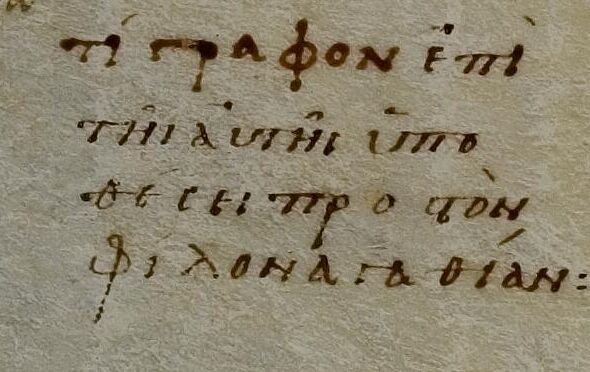 τίγραφον ἐπὶ
τῆι ἀυτῆι ὑπο
θέσει προ τὸν
φιλοναγαθίαν: